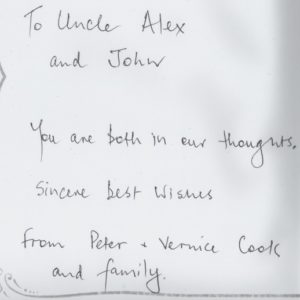 To Uncle Alex
and John
You are both in our thoughts.
Sincere best wishes
from Peter + Vernice Cook
and family.